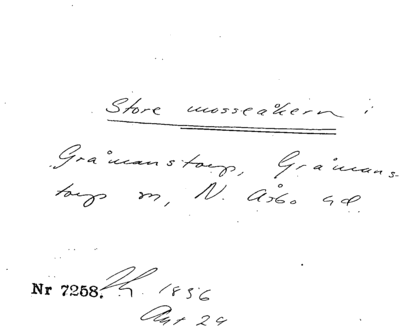 Store mosseåkern i
Gråmanstorp, Gråmans-
torps sn, N. Åsbo hd
Nr 7258. 1856
Akt 29